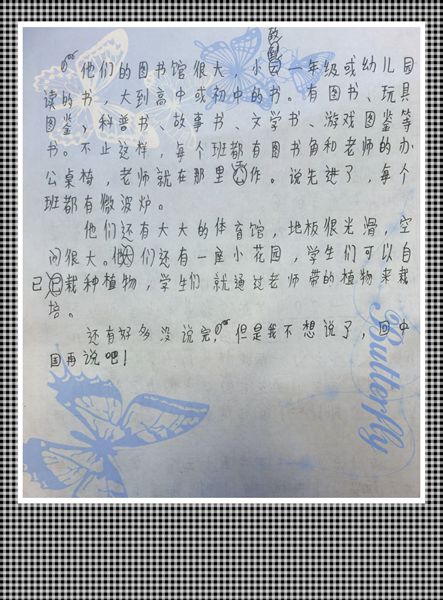 他们的图书馆很大，小到一年级或幼儿园
读的书，大到高中或初中的书。有图书、玩具
图鉴，科普书、故事书、文学书、游戏图鉴等
书。不止这样，每个班都有图书角和老师的办
公桌椅，老师就在那里工作。说先进了，每个
班都有微波炉。
他们还有大大的体育馆，地板很光滑，空
间很大。他们还有一座小花园，学生们可以自
已栽种植物，学生们就通过老师带的植物来栽
培。
还有好多没说完，但是我不想说了，回中
国再说吧！
Butterfly